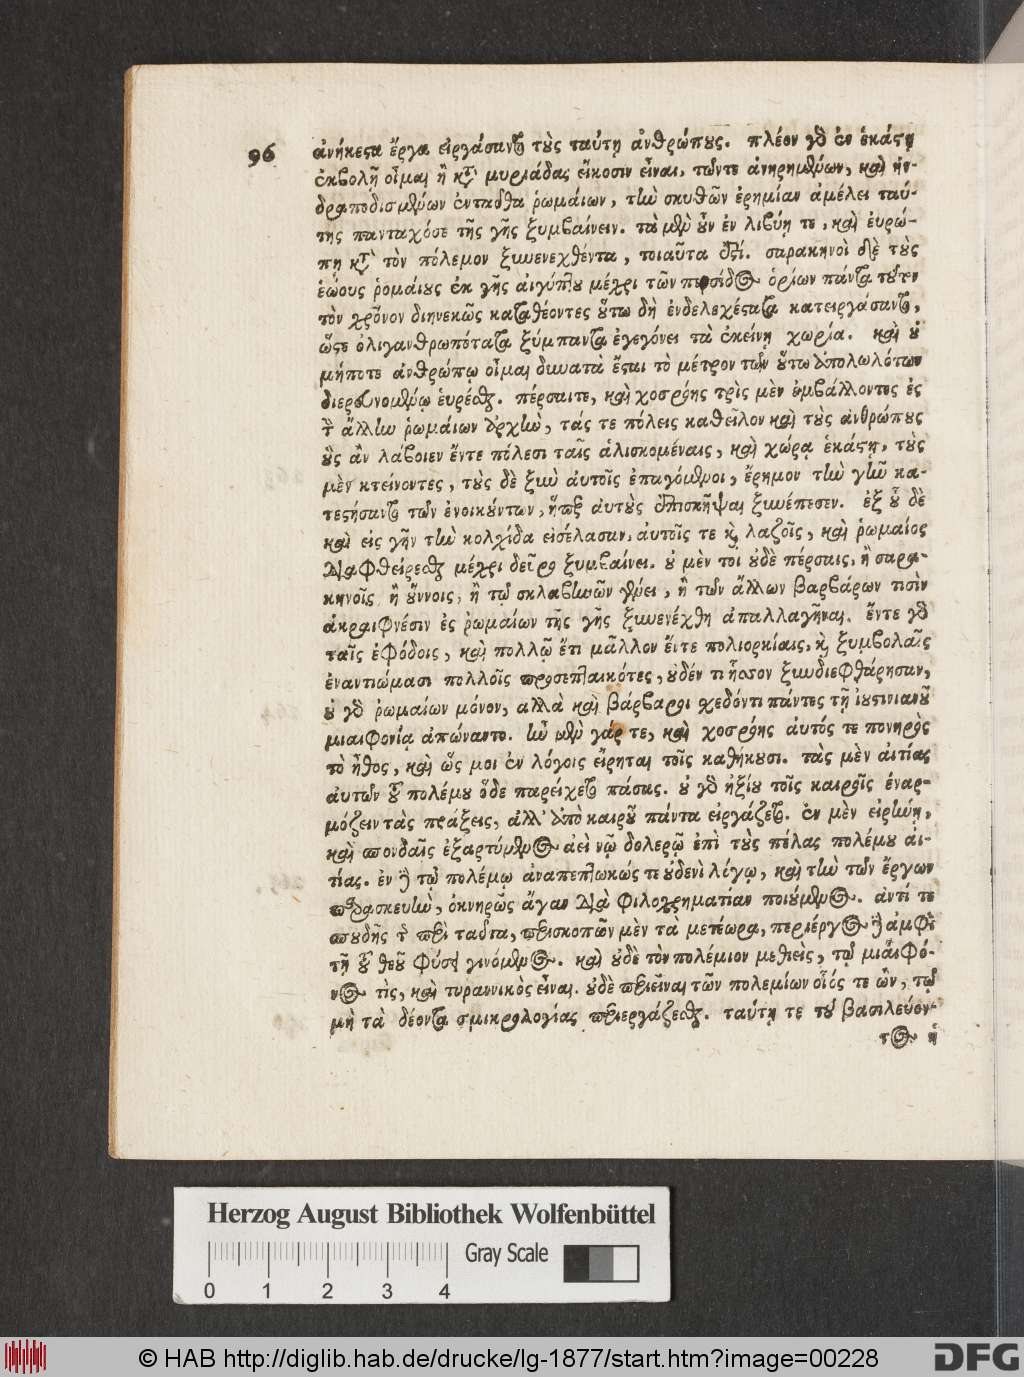 96
ἀνήκεστα ἔργα εἰργάσαντο τοὺς ταύτῃ ἀνθρώπους. πλέον γὸ ἐν ἑκάστῃ
ἐκβολῇ οἶμαι ἢ κατὰ μυριάδας εἴκοσιν εἶναι, τῶντε ἀνῃρημένων, καὶ ἠν-
δραποδισμένων ἐνταῦθα ῥωμαίων, τὴν σκυθῶν ἐρημίαν ἀμέλει ταύ-
της πανταχόσε τῆς γῆς ξυμβαίνειν. τὰ μὲν οὖν ἐν λιβύῃ τε, καὶ ἐυρώ-
πῃ κατὰ τὸν πόλεμον ξυνενεχθέντα, τοιαῦτα ἐστί. σαρακηνοὶ δὲ τοὺς
ἑῴους ῥομάιους ἐκ γῆς ἀιγύπτου μέχρι τῶν περσίδος ὁρίων πάντα τοῦτον
τὸν χρόνον διηνεκῶς καταθέοντες οὕτω δὴ ἐνδελεχέστατα κατειργάσαντο,
ὥστε ὀλιγανθρωπότατα ξύμπαντα ἐγεγόνει τὰ ἐκείνῃ χωρία. καὶ οὐ
μήποτε ἀνθρώπῳ οἶμαι δυνατὰ ἔσται τὸ μέτρον τῶν οὕτω ἀπολωλότων
διερευνομένῳ ἑυρέσθαι. πέρσαιτε, καὶ χοσρόης τρὶς μὲν ἐμβάλλοντος ἐς
τὴν ἄλλην ῥωμάιων ἀρχὴν, τάς τε πόλεις καθεῖλον καὶ τοὺς ἀνθρώπους
οὓς ἂν λάβοιεν ἔντε πόλεσι ταῖς ἁλισκομέναις, καὶ χώρᾳ ἑκάστῃ, τοὺς
μὲν κτείνοντες, τοὺς δὲ ξὺν ἀυτοῖς ἐπαγόμενοι, ἔρημον τὴν γῆν κα-
τεστήσαντο τῶν ἐνοικούντων, ᾗπερ ἀυτοὺς ἐπισκῆψαι ξυνέπεσεν. ἐξ οὗ δὲ
καὶ εἰς γῆν τὴν κολχίδα εἰσέλασαν, ἀυτοῖς τε καὶ λαζοῖς, καὶ ῥωμαίος
διαφθείρεσθαι μέχρι δεῦρο ξυμβαίνει. οὐ μὲν τοι οὐδὲ πέρσαις, ἢ σαρα-
κηνοῖς ἢ οὔννοις, ἢ τῷ σκλαβηνῶν γένει, ἢ τῶν ἄλλων βαρβάρων τισὶν
ἀκραιφνέσιν ἐς ῥωμαίων τῆς γῆς ξυνενέχθη ἀπαλλαγῆναι. ἔντε γὸ
ταῖς ἐφόδοις, καὶ πολλῷ ἔτι μᾶλλον ἔντε πολιορκίαις, καὶ ξυμβολαῖς
ἐναντιώμασι πολλοῖς προσεπταικότες, οὐδέν τι ἧσσον ξυνδιεφθάρησαν,
οὐ γὸ ῥωμαίων μόνον, αλλὰ καὶ βάρβαροι σχεδόντι πάντες τῇ ἰουστινιανοῦ
μιαιφονίᾳ ἀπώναντο. ἦν μὲν γάρ τε, καὶ χοσρόης ἀυτός τε πονηρὸς
τὸ ἦθος, καὶ ὥς μοι ἐν λόγοις εἴρηται τοῖς καθήκουσι. τὰς μὲν ἀιτίας
ἀυτῶν τοῦ πολέμου ὅδε παρείχετο πάσας. οὐ γὸ ἠξίου τοῖς καιροῖς ἐναρ-
μόζειν τὰς πράξεις, ἀλλ᾽ ἀπὸ καιροῦ πάντα εἰργάζετο. ἐν μὲν εἰρήνῃ,
καὶ σπονδαῖς ἐξαρτύμενος ἀεὶ νῷ δολερῷ ἐπὶ τοὺς πέλας πολέμου ἀι-
τίας. ἐν δὲ τῷ πολέμῳ ἀναπεπτωκώς τε οὐδενὶ λόγῳ, καὶ τὴν τῶν ἔργων
παρασκευὴν, ὀκνηρῶς ἄγαν διὰ φιλοχρηματίαν ποιούμενος. ἀντί τε
σπουδῆς τῆς περὶ ταῦτα, περισκοπῶν μὲν τὰ μετέωρα, περιέργος δὲ ἀμφὶ
τῇ τοῦ θεοῦ φύσει γινόμενος. καὶ οὐδὲ τὸν πολέμιον μεθιεὶς, τῷ μιαιφό-
νος τὶς, καὶ τυραννικὸς εἶναι. οὐδὲ περιεῖναι τῶν πολεμίων οἷός τε ὢν, τῷ
μὴ τὰ δέοντα σμικρολογίας περιεργάζεσθαι. ταύτῃ τε τοῦ βασιλεύον-
τος ἡ
Herzog August Bibliothek Wolfenbüttel
Gray Scale
0 1 2 3 4
© HAB http://diglib.hab.de/drucke/lg-1877/start.htm?image=00228
DFG